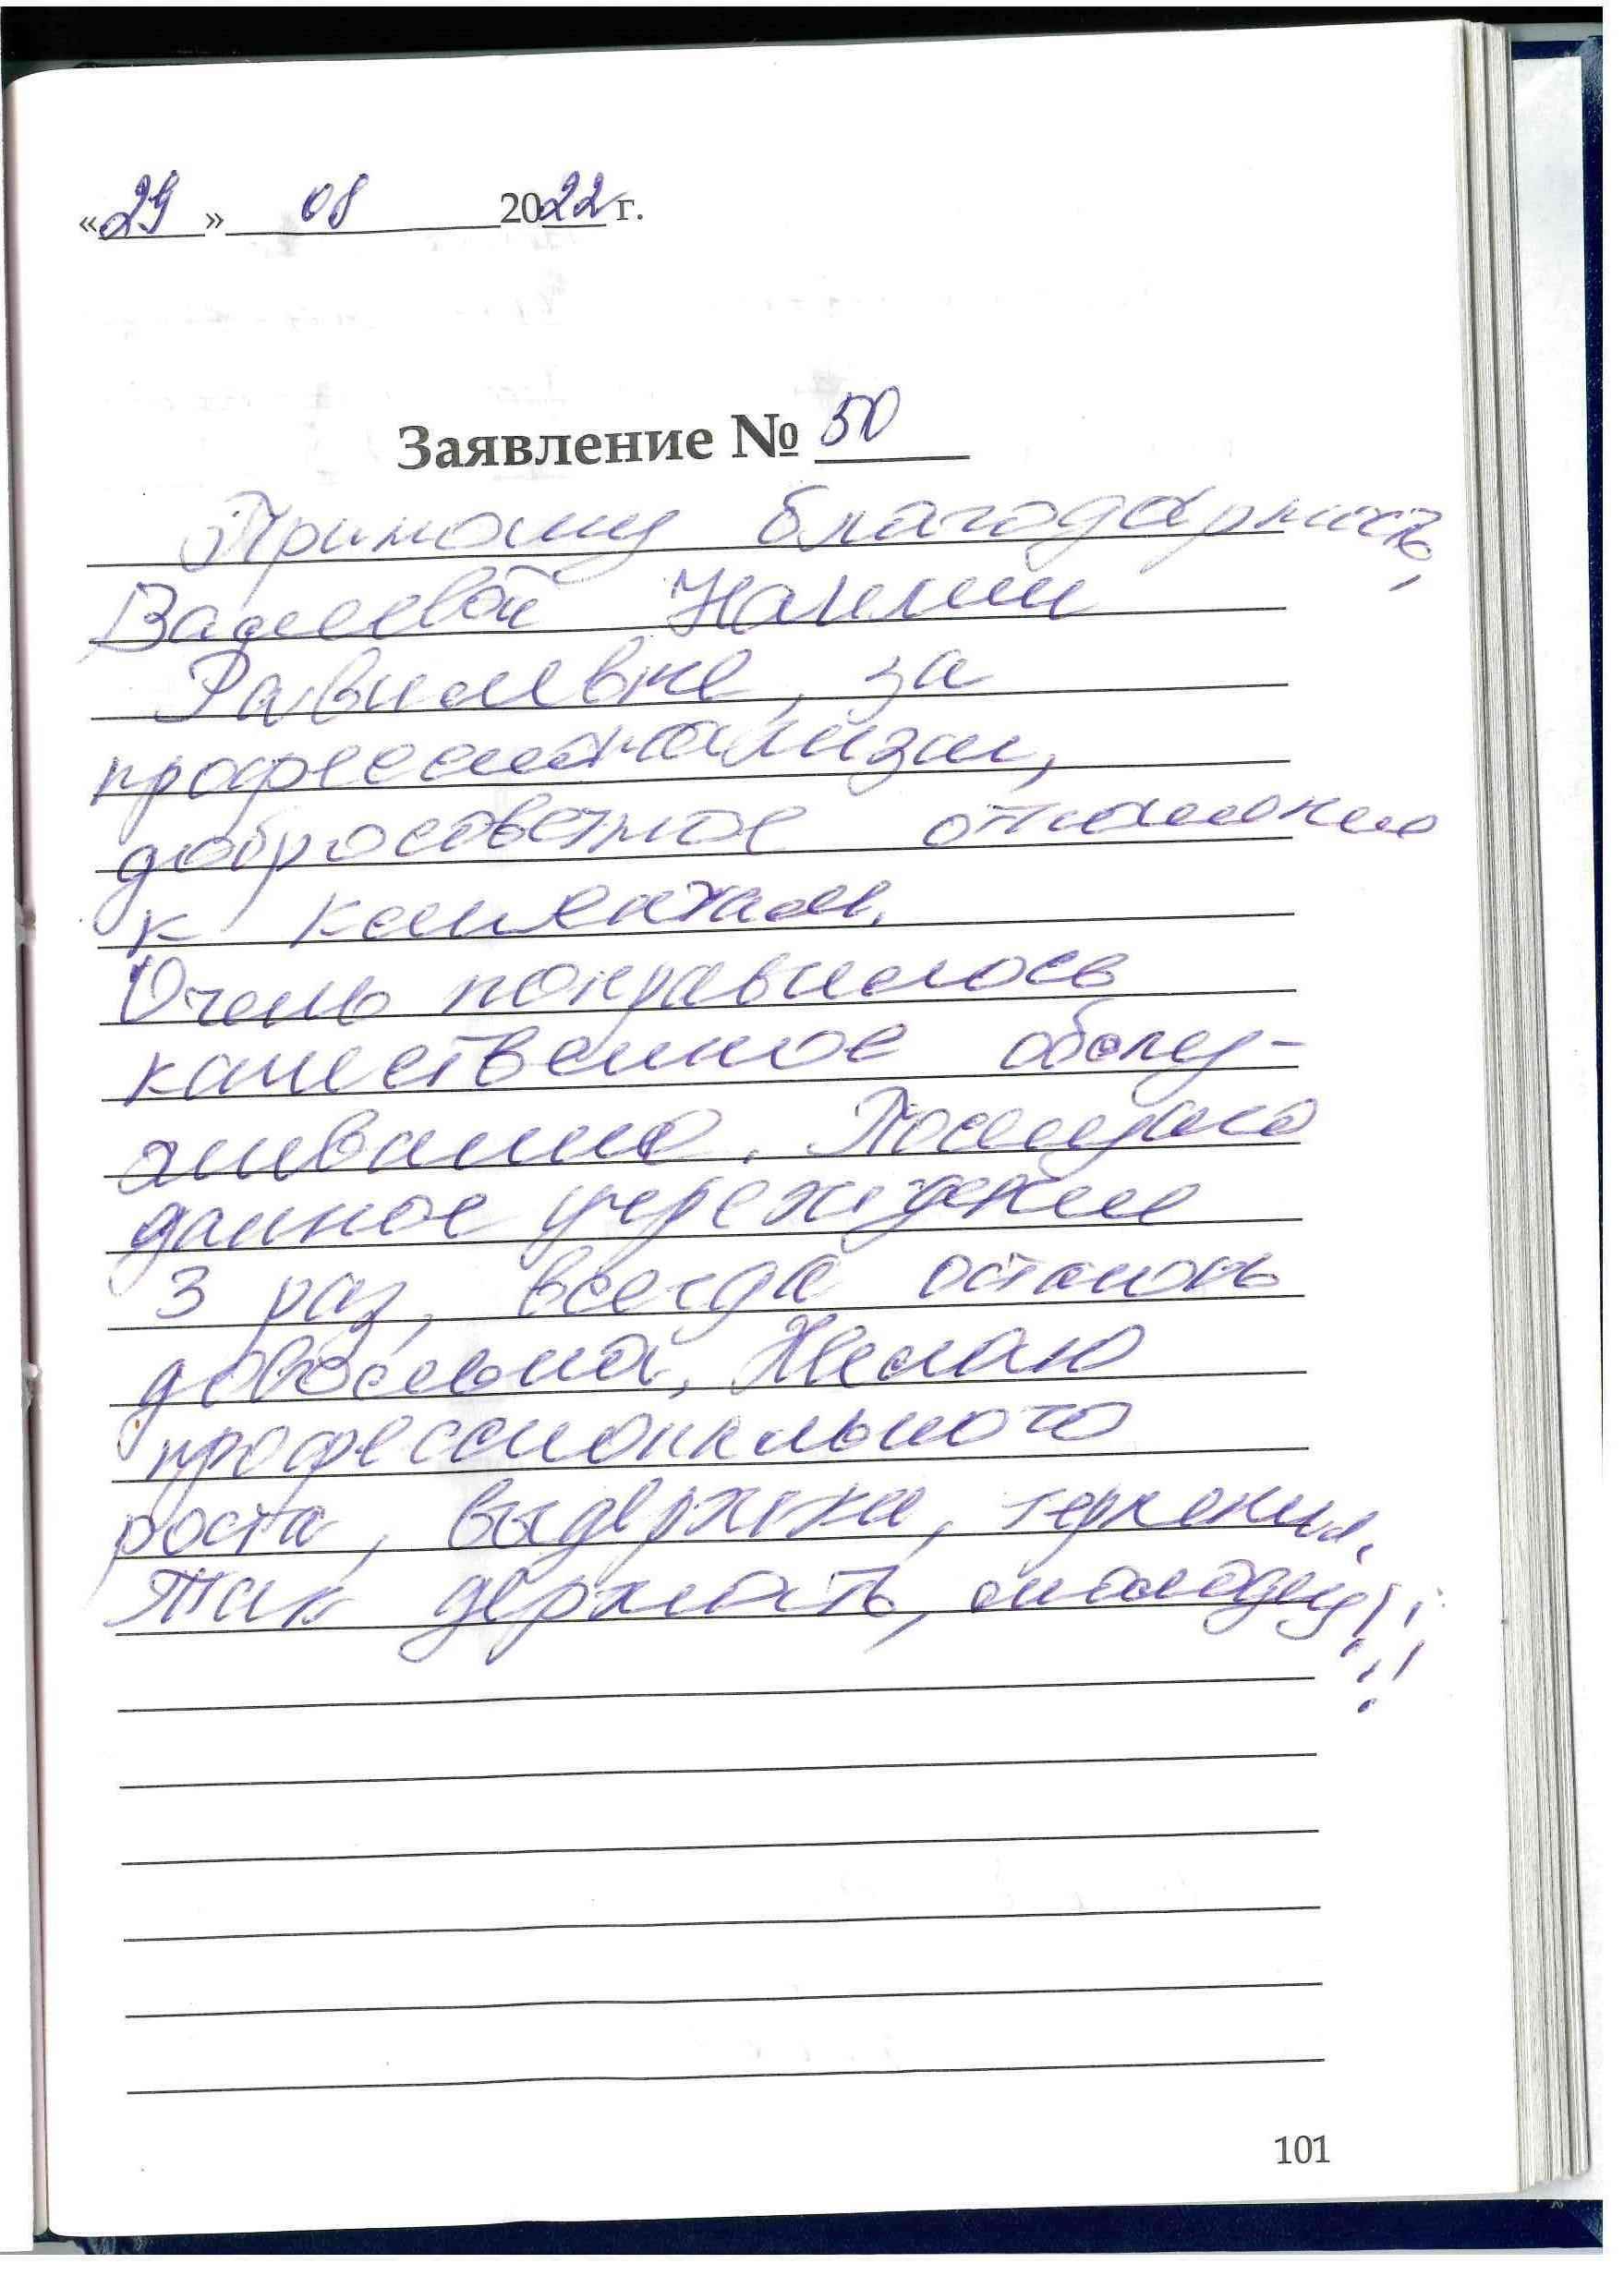 «29» 08 2022 г.
Заявление № 50
Приношу благодарность,
Наилии
Равилевне, за
профессионализм,
добросовестное отношение
к клиентам.
Очень понравилось
качественное обслу-
живание. Посещаю
данное учреждение
3 раз, всегда остаюсь
довольна. Желаю
профессионального
роста, выдержки, терпения.
Так держать, молодец!!
!!
101